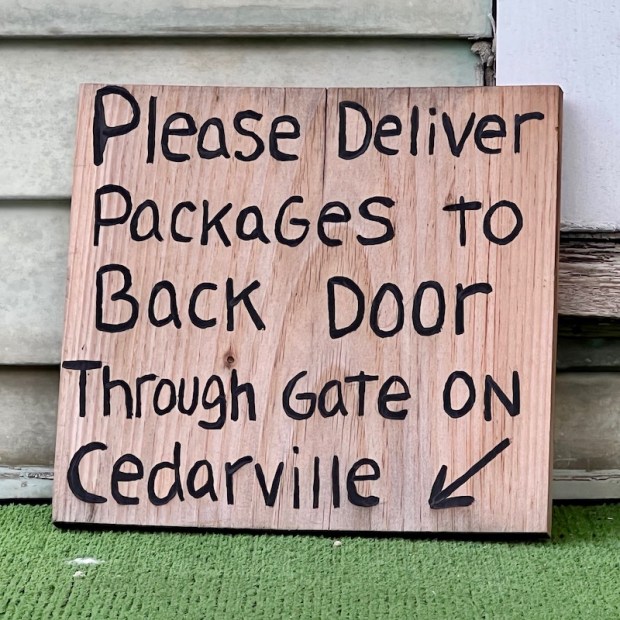 Please Deliver
Packages to
Back Door
Through Gate on
Cedarville ↙